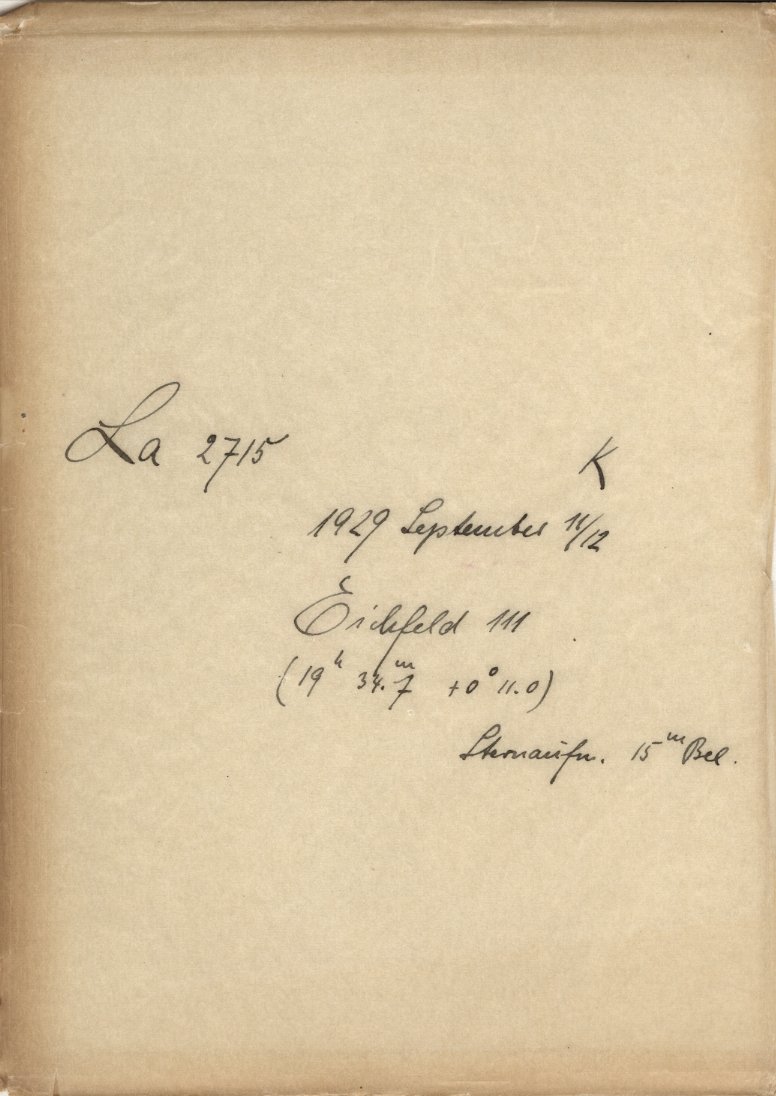 La 2715 K
1929 September 11/12
Eichfeld 111
(19ʰ 34.ᵐ7 +0° 11.0)
Sternaufn. 15ᵐ Bel.